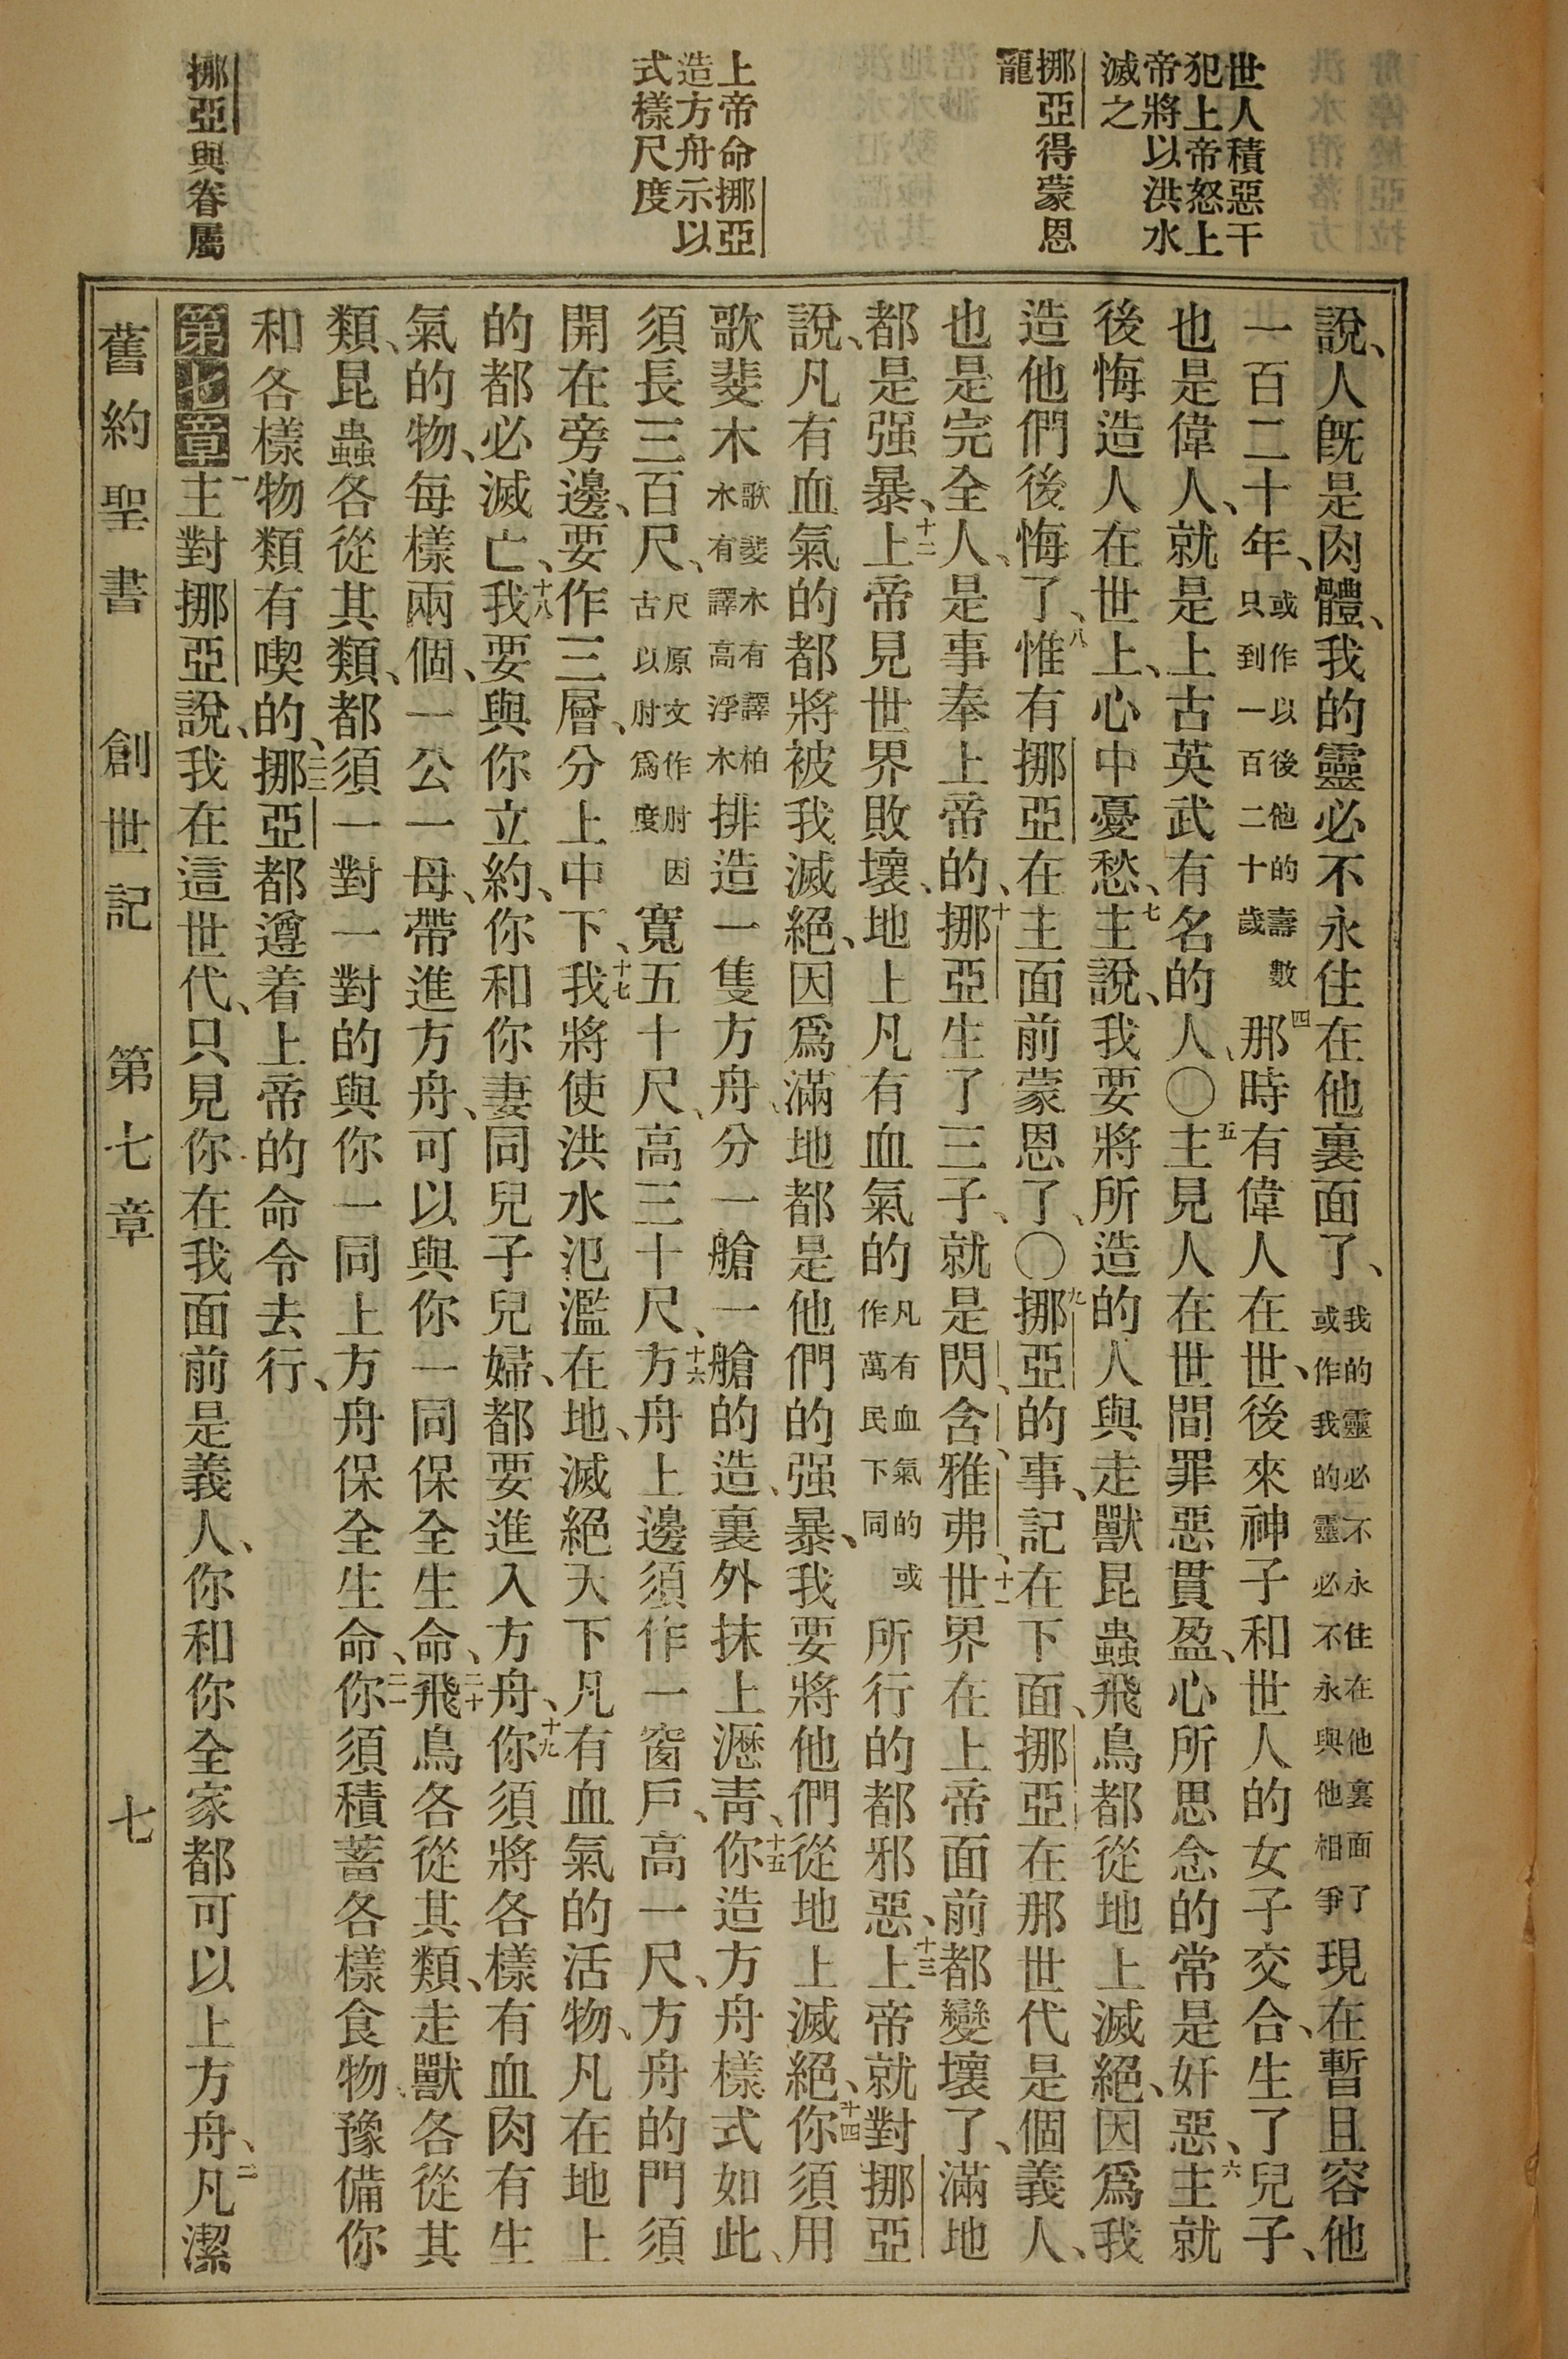 世人積惡干
犯上帝怒上
帝將以洪水
滅之
挪亞得蒙恩
寵
上帝命挪亞
造方舟示以
式樣尺度
挪亞與眷屬
說、人旣是肉體、我的靈必不永住在他裏面了、我的靈必不永住在他裏面了或作我的靈必不永與他相爭現在暫且容他
一百二十年、或作以後他的壽數只到一百二十歲四那時有偉人在世、後來神子和世人的女子交合、生了兒子、
也是偉人、就是上古英武有名的人、〇五主見人在世間罪惡貫盈、心所思念的常是奸惡、六主就
後悔造人在世上、心中憂愁、七主說、我要將所造的人與走獸昆蟲飛鳥都從地上滅絕、因爲我
造他們後悔了、八惟有挪亞在主面前蒙恩了、〇九挪亞的事、記在下面、挪亞在那世代是個義人、
也是完全人、是事奉上帝的、十挪亞生了三子、就是閃、含、雅弗、十一世界在上帝面前都變壞了、滿地
都是强暴、十二上帝見世界敗壞、地上凡有血氣的凡有血氣的或作萬民下同所行的都邪惡、十三上帝就對挪亞
說、凡有血氣的都將被我滅絕、因爲滿地都是他們的强暴、我要將他們從地上滅絕、十四你須用
歌斐木歌斐木有譯柏木有譯高浮木排造一隻方舟、分一艙一艙的造、裏外抹上瀝靑、十五你造方舟樣式如此、
須長三百尺、尺原文作肘因古以肘爲度寬五十尺、高三十尺、十六方舟上邊須作一窗戶、高一尺、方舟的門須
開在旁邊、要作三層、分上中下、十七我將使洪水氾濫在地、滅絕天下凡有血氣的活物、凡在地上
的都必滅亡、十八我要與你立約、你和你妻同兒子兒婦、都要進入方舟、十九你須將各樣有血肉有生
氣的物、每樣兩個、一公一母、帶進方舟、可以與你一同保全生命、二十飛鳥各從其類、走獸各從其
類、昆蟲各從其類、都須一對一對的與你一同上方舟保全生命、二一你須積蓄各樣食物、豫備你
和各樣物類有喫的、二二挪亞都遵着上帝的命令去行、
第七章一主對挪亞說、我在這世代、只見你在我面前是義人、你和你全家都可以上方舟、二凡潔
舊約聖書 創世記 第七章 七